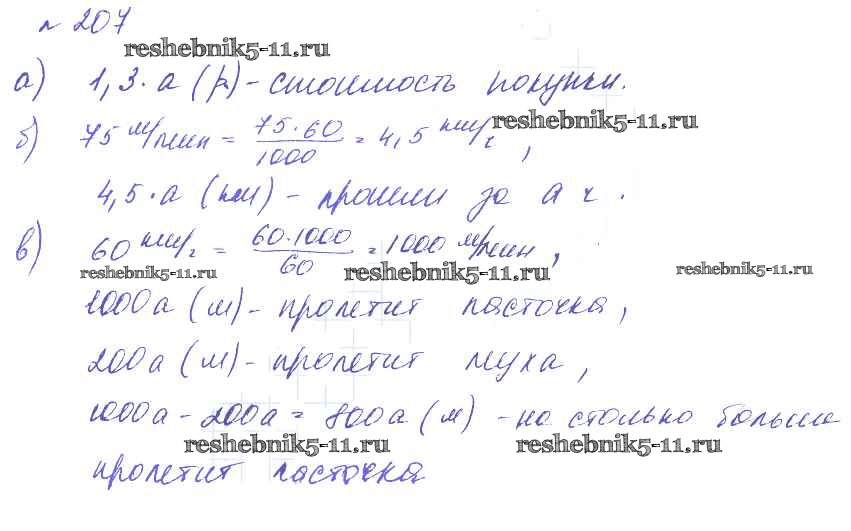 № 207
reshebnik5-11.ru
а) 1,3·а (р) - стоимость покупки.
б) 75 м/мин = 75·60/1000 = 4,5 км/ч,
reshebnik5-11.ru
4,5·а (км) - прошли за а ч.
в) 60 км/ч = 60·1000/60 = 1000 м/мин,
reshebnik5-11.ru reshebnik5-11.ru reshebnik5-11.ru
1000а (м) - пролетит ласточка,
200а (м) - пролетит муха,
1000а - 200а = 800а (м) - на столько больше
reshebnik5-11.ru reshebnik5-11.ru
пролетит ласточка